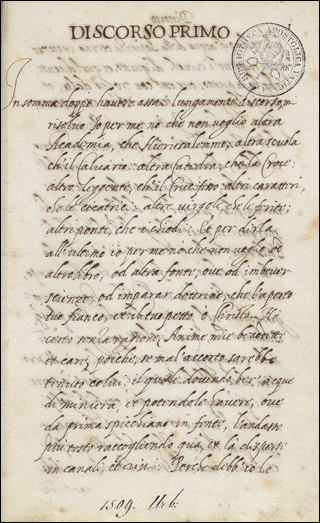 DISCORSO PRIMO
In somma doppo havere assai lungamente discorso mi
risolvo Io per me, no che non voglio altra
Academia, che Hierusalemme; altra scuola
ch'il Calvario: altra Catedra, che la Croce:
altro leggente, ch'il Crucifisso: altri caratteri
che le cicatrici: altre virgole, che le ferite;
altri ponti, che i chiodi: Et per dirla
all'ultimo io per me no che non voglio od
altro libro, od altra fonte, ove od imbever
scienze, od imparar dottrine, che l'aperto
tuo fianco, et il tuo petto o Christo. Et
certo senza ragione, Anime mie benedette
et care, poiche, se mal accorto sarebbe
tenuto colui, il quale dovendo ber acque
di miniera, et potendole havere, ove
da prima spicchiano in fonte, l'andasse
più tosto raccogliendo qua, et là disperse
in canali, et Perche debb'io le
1509. Urb.